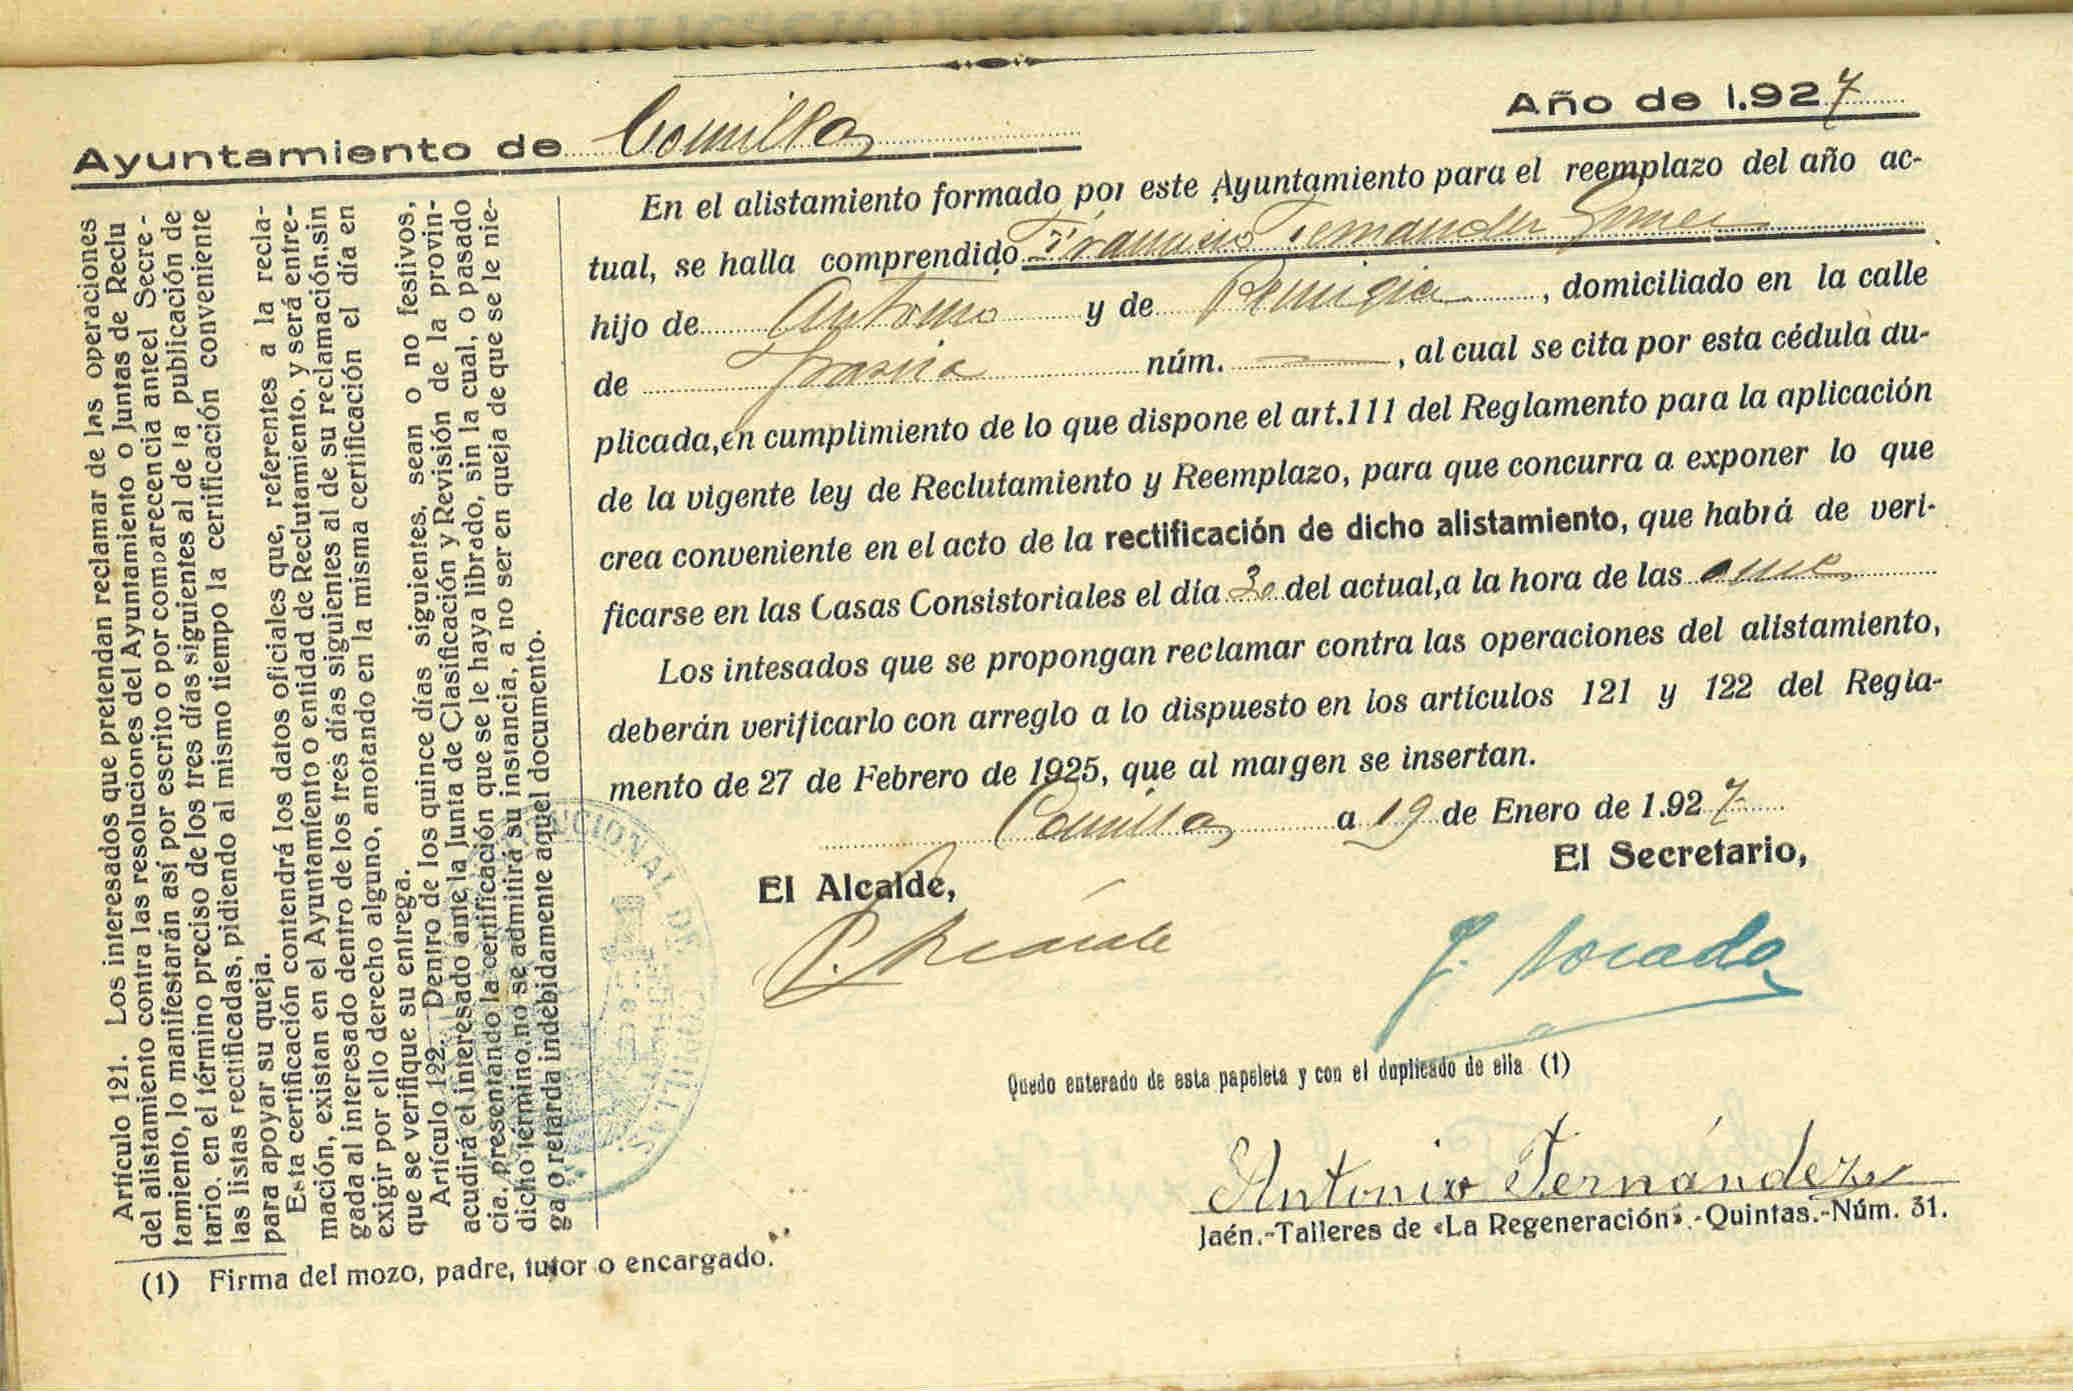 Año de 1.927
Ayuntamiento de Comillas
En el alistamiento formado por este Ayuntamiento para el reemplazo del año ac-
tual, se halla comprendido Francisco Fernandez
hijo de Antonio y de Remigia, domiciliado en la calle
de núm. —, al cual se cita por esta cédula du-
plicada, en cumplimiento de lo que dispone el art. 111 del Reglamento para la aplicación
de la vigente ley de Reclutamiento y Reemplazo, para que concurra a exponer lo que
crea conveniente en el acto de la rectificación de dicho alistamiento, que habrá de veri-
ficarse en las Casas Consistoriales el dia 30 del actual, a la hora de las once
Los intesados que se propongan reclamar contra las operaciones del alistamiento,
deberán verificarlo con arreglo a lo dispuesto en los artículos 121 y 122 del Regla-
mento de 27 de Febrero de 1925, que al margen se insertan.
Comillas a 19 de Enero de 1.927
El Alcalde,
El Secretario,
Quedo enterado de esta papeleta y con el duplicado de ella (1)
Antonio Fernández
Jaén.-Talleres de «La Regeneración».-Quintas.-Núm. 31.
Artículo 121. Los interesados que pretendan reclamar de las operaciones
del alistamiento contra las resoluciones del Ayuntamiento o Juntas de Reclu
tamiento, lo manifestarán así por escrito o por comparecencia anteel Secre-
tario. en el término preciso de los tres días siguientes al de la publicación de
las listas rectificadas, pidiendo al mismo tiempo la certificación conveniente
para apoyar su queja.
Esta certificación contendrá los datos oficiales que, referentes a la recla-
mación, existan en el Ayuntamiento o entidad de Reclutamiento, y será entre-
gada al interesado dentro de los tres días siguientes al de su reclamación.sin
exigir por ello derecho alguno, anotando en la misma certificación el día en
que se verifique su entrega.
Artículo 122. Dentro de los quince días siguientes, sean o no festivos,
acudirá el interesado ante la Junta de Clasificación y Revisión de la provin-
cia, presentando la certificación que se le haya librado, sin la cual, o pasado
dicho término, no se admitirá su instancia, a no ser en queja de que se le nie-
ga o retarda indebidamente aquel documento.
(1) Firma del mozo, padre, tutor o encargado.